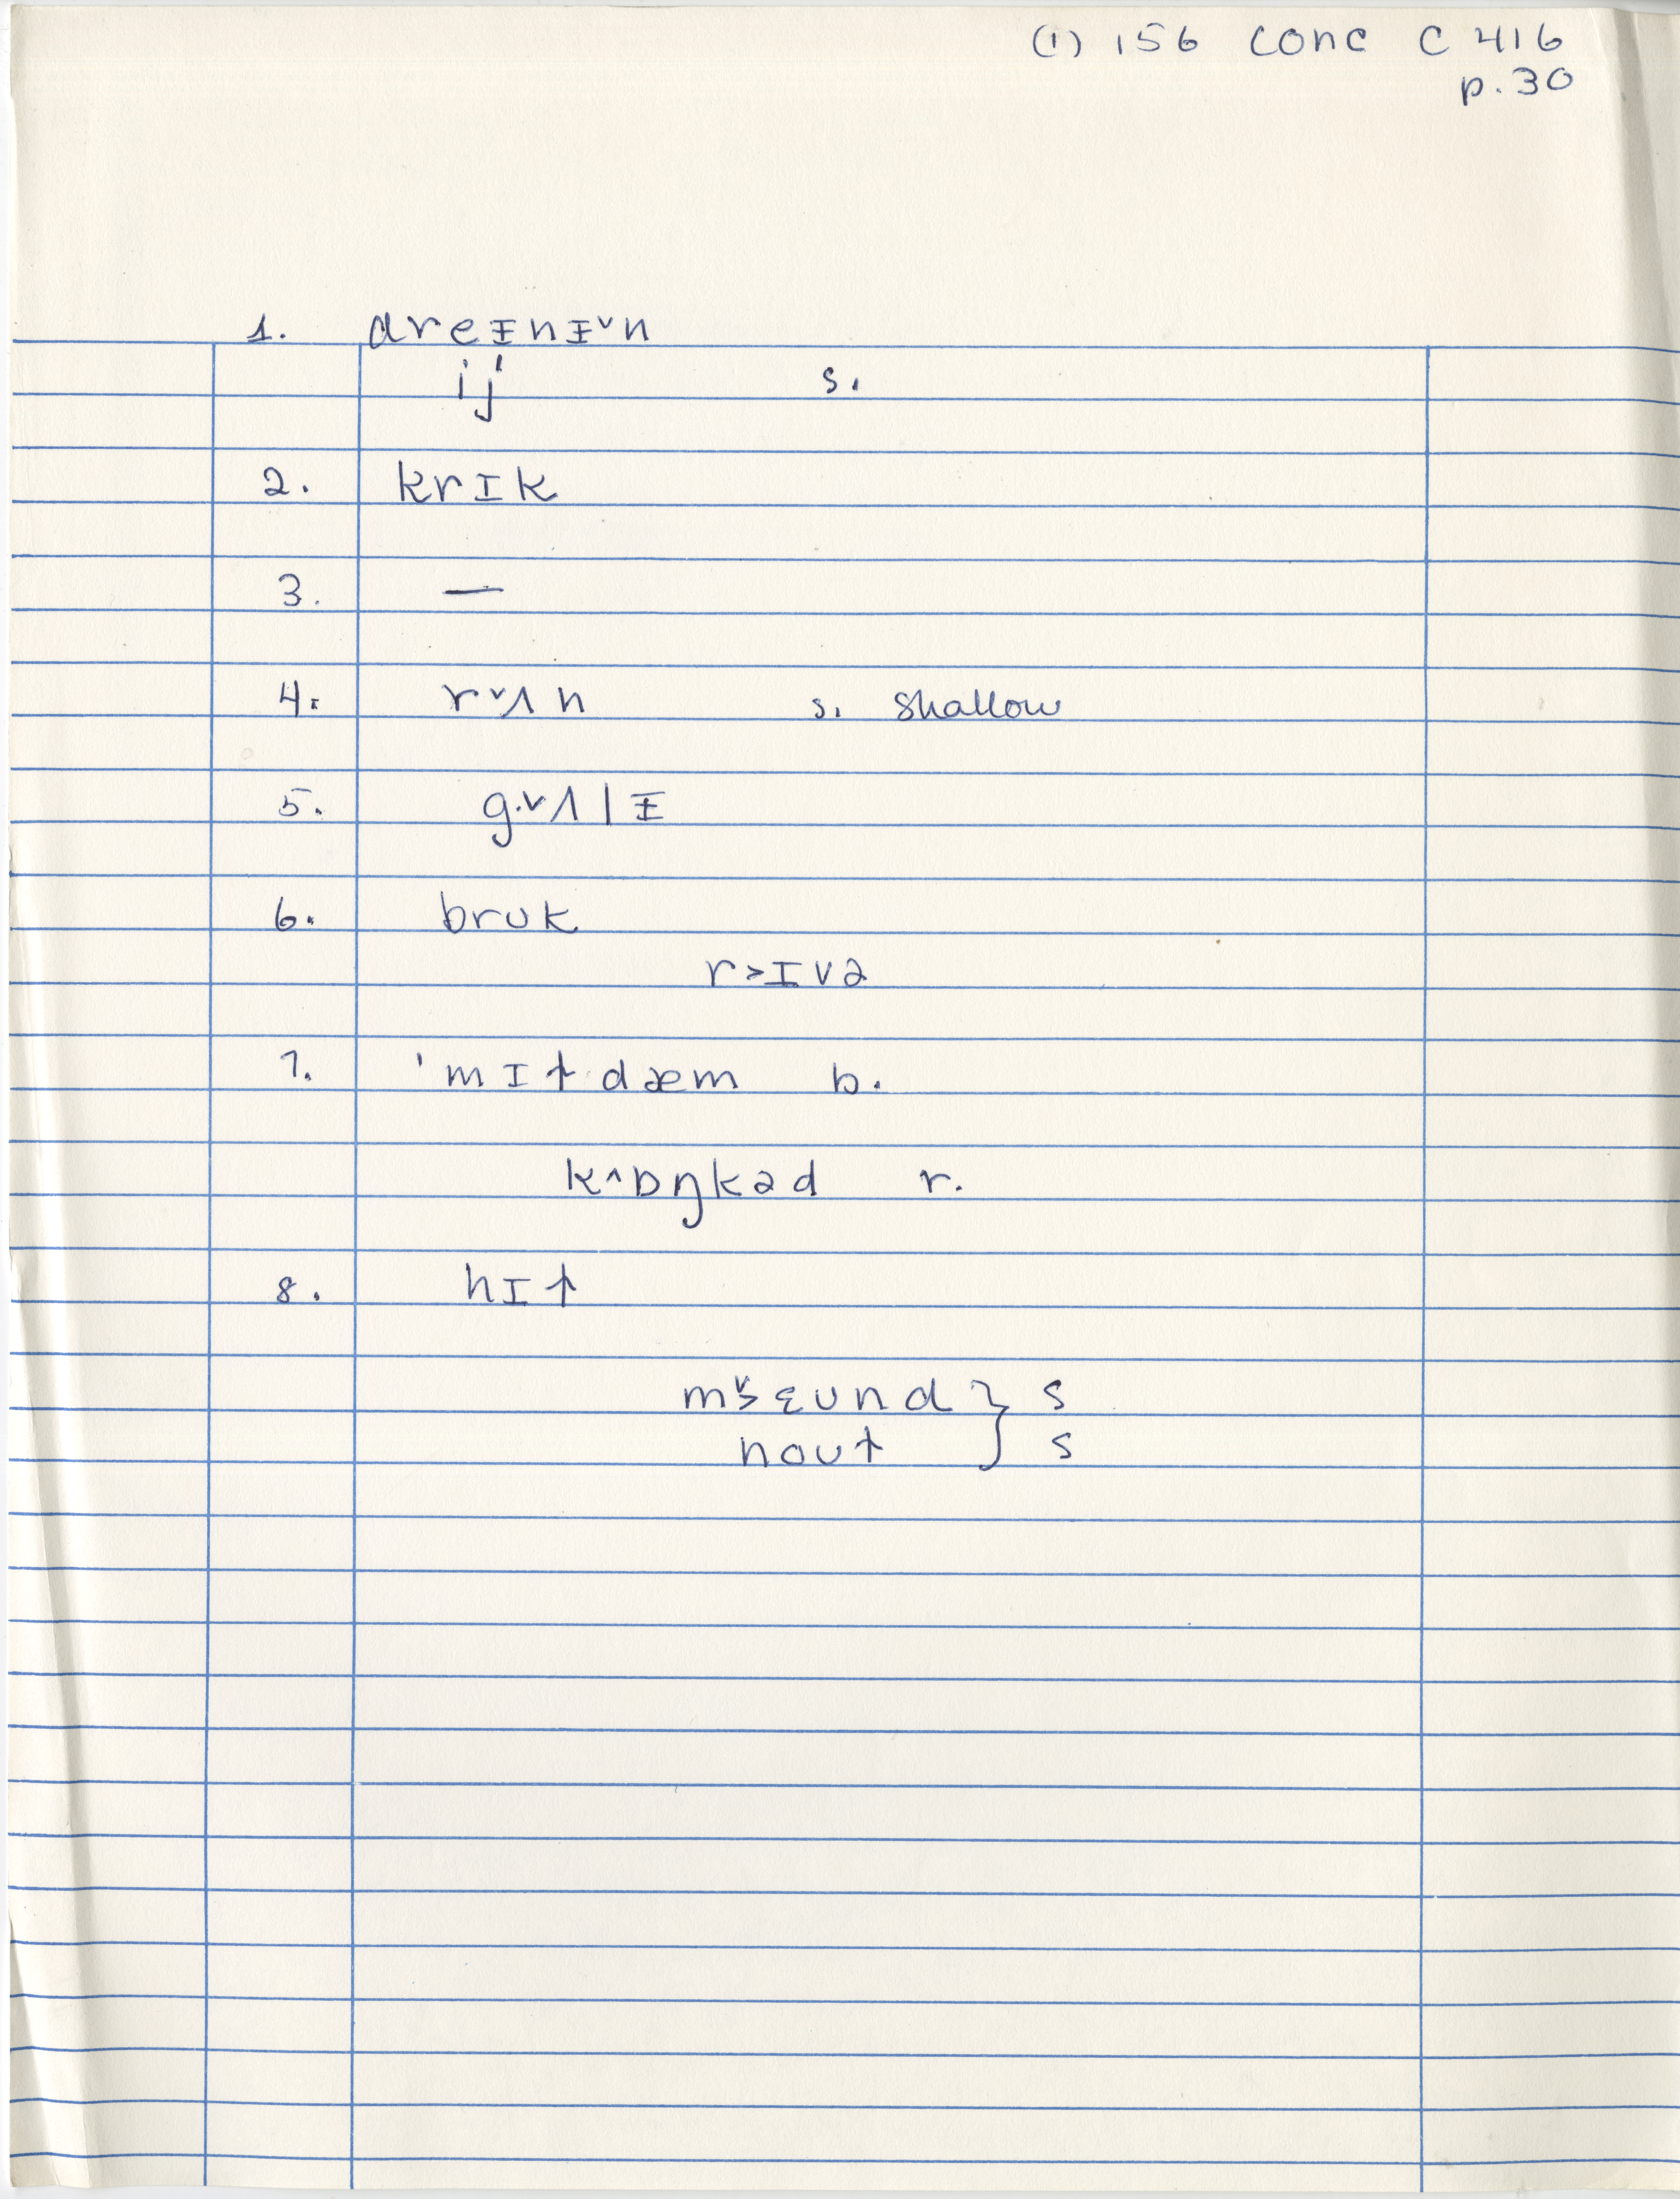 (1) 156 conc C 416
p. 30
1. dreᵻnᵻ˅n
ij' s.
2. krɪk
3. —
4. r˅ʌn s. shallow
5. g·˅ʌlᵻ
6. brʊk
r>ɪvə
7. 'mɪtdæm b.
k^ɒŋkəd r.
8. hɪt
m˅>ɛʊnd } s
noʊt } s